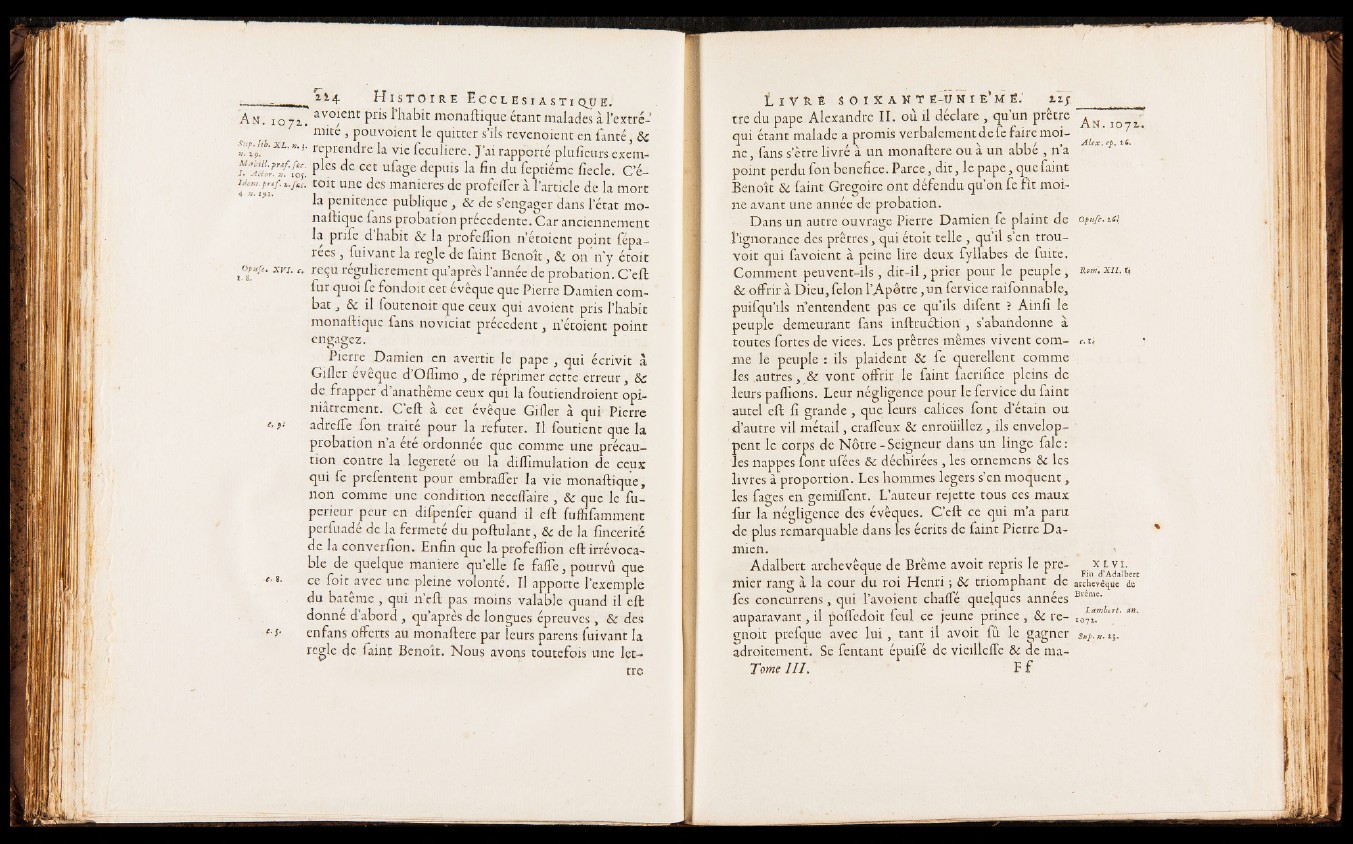 224 HISTOIRE ECCLESIASTIQUE.
AN. 1072.
avoient pris l'habit monaſtique étant malades à l'extré-
mité, pouvoient le quitter s'ils revenoient en ſanté, &
Sup. lib. XL. n. 3.
n. 29.
reprendre la vie ſeculiere. J'ai rapporté pluſieurs exem-
Mabill. præf. ſæc.
1. Actor. n. 105.
ples de cet uſage depuis la fin du ſeptiéme ſiecle. C'é-
Idem. præf. 2. ſæc.
4 n. 192.
toit une des manieres de profeſſer à l'article de la mort
la penitence publique, & de s'engager dans l'état mo-
naſtique ſans probation précedente. Car anciennement
la priſe d'habit & la profeſſion n'étoient point ſépa-
rées, ſuivant la regle de ſaint Benoît, & on n'y étoit
Opuſc. XVI. c.
2. 8.
reçu régulierement qu'après l'année de probation. C'eſt
ſur quoi ſe fondoit cet évêque que Pierre Damien com-
bat, & il ſoutenoit que ceux qui avoient pris l'habit
monaſtique ſans noviciat précedent, n'étoient point
engagez.
Pierre Damien en avertit le pape, qui écrivit à
Giſler évêque d'Oſſimo, de réprimer cette erreur, &
de frapper d'anathême ceux qui la ſoutiendroient opi-
niâtrement. C'eſt à cet évêque Giſler à qui Pierre
adreſſe ſon traité pour la refuter. Il ſoutient que la
probation n'a été ordonnée que comme une précau-
tion contre la legereté ou la diſſimulation de ceux
qui ſe preſentent pour embraſſer la vie monaſtique,
non comme une condition neceſſaire, & que le ſu-
perieur peut en diſpenſer quand il eſt ſuffiſamment
perſuadé de la fermeté du poſtulant, & de la ſincerité
de la converſion. Enfin que la profeſſion eſt irrévoca-
ble de quelque maniere qu'elle ſe faſſe, pourvû que
c. 8.
ce ſoit avec une pleine volonté. Il apporte l'exemple
du batême, qui n'eſt pas moins valable quand il eſt
donné d'abord, qu'après de longues épreuves, & des
c. 5.
enfans offerts au monaſtere par leurs parens ſuivant la
regle de ſaint Benoît. Nous avons toutefois une let-
tre
LIVRE SOIXANTE-UNIE'ME. 225
AN. 1072.
tre du pape Alexandre II. où il déclare, qu'un prêtre
qui étant malade a promis verbalement de ſe faire moi-
Alex. ep. 26.
ne, ſans s'être livré à un monaſtere ou à un abbé, n'a
point perdu ſon benefice. Parce, dit le pape, que ſaint
Benoît & ſaint Gregoire ont défendu qu'on ſe fît moi-
ne avant une année de probation.
Dans un autre ouvrage Pierre Damien ſe plaint de
Opuſc. 26.
l'ignorance des prêtres, qui étoit telle, qu'il s'en trou-
voit qui ſavoient à peine lire deux ſyllabes de ſuite.
Comment peuvent-ils, dit-il, prier pour le peuple,
Rom. XII. 1.
& offrir à Dieu, ſelon l'Apôtre, un ſervice raiſonnable,
puiſqu'ils n'entendent pas ce qu'ils diſent ? Ainſi le
peuple demeurant ſans inſtruction, s'abandonne à
toutes ſortes de vices. Les prêtres mêmes vivent com-
me le peuple : ils plaident & ſe querellent comme
les autres, & vont offrir le ſaint ſacrifice pleins de
leurs paſſions. Leur négligence pour le ſervice du ſaint
autel eſt ſi grande, que leurs calices ſont d'étain ou
d'autre vil métail, craſſeux & enroüillez, ils envelop-
pent le corps de Nôtre-Seigneur dans un linge ſale :
les nappes ſont uſées & déchirées, les ornemens & les
livres à proportion. Les hommes legers s'en moquent,
les ſages en gemiſſent. L'auteur rejette tous ces maux
ſur la négligence des évêques. C'eſt ce qui m'a paru
de plus remarquable dans les écrits de ſaint Pierre Da-
mien.
XLVI.
Fin d'Adalbert
archevêque de
Brême.
Adalbert archevêque de Brême avoit repris le pre-
mier rang à la cour du roi Henri ; & triomphant de
ſes concurrens, qui l'avoient chaſſé quelques années
Lambert. an.
1072.
auparavant, il poſſedoit ſeul ce jeune prince, & re-
gnoit preſque avec lui, tant il avoit ſû le gagner
Sup. n. 23.
adroitement. Se ſentant épuiſé de vieilleſſe & de ma-
Tome III. Ff